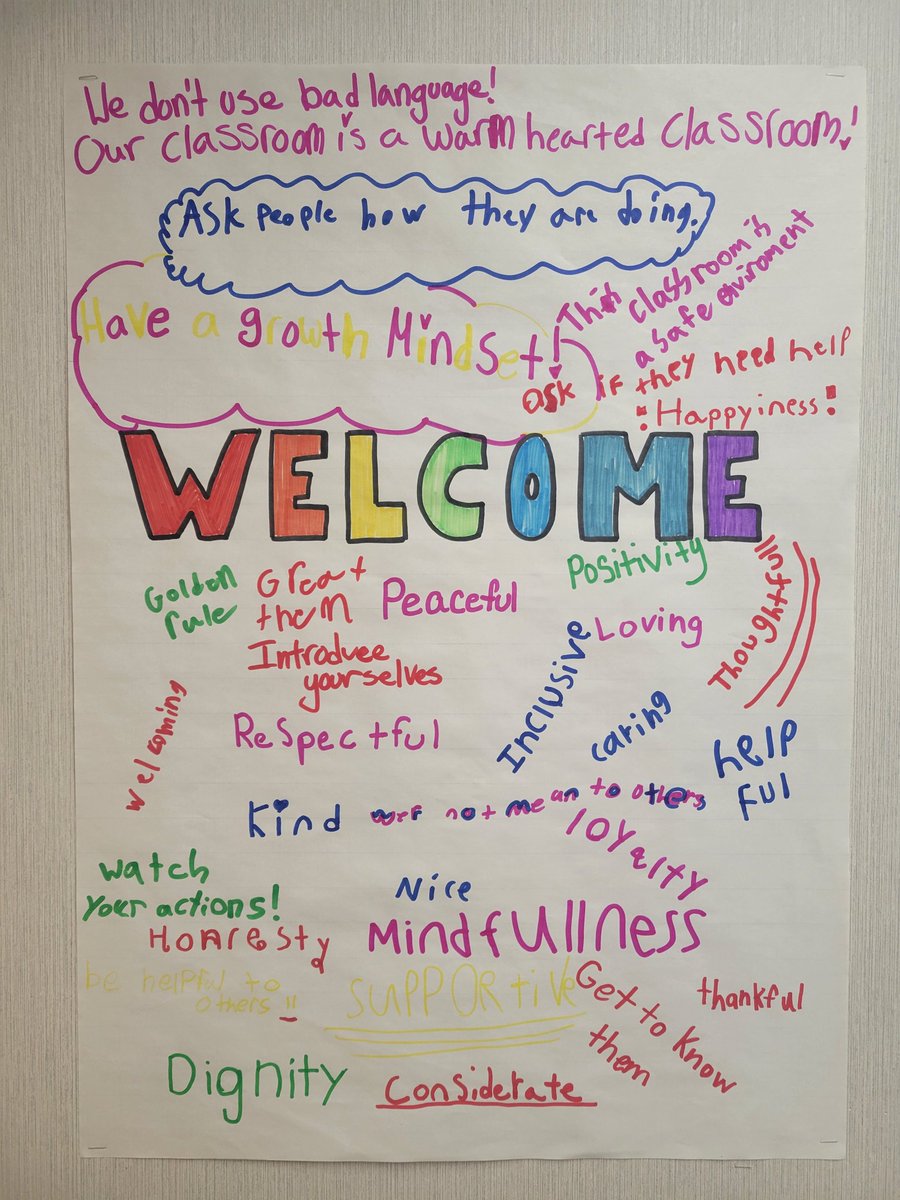 We don't use bad language!
Our classroom is a warm hearted classroom!
Ask people how they are doing.
This classroom is
a safe enviroment
Have a growth Mindset!
ask if they need help
!Happyiness!
WELCOME
Golden
rule
Great
them
Introduce
yourselves
Peaceful
Positivity
Loving
Thoughtfull
Inclusive
caring
help
ful
welcoming
Respectful
Kind not mean to others
loyalty
watch
your actions!
Nice
Honesty
Mindfullness
be helpful to
others !!
SUPPORtiVE
Get to know
them
thankful
Dignity
Considerate